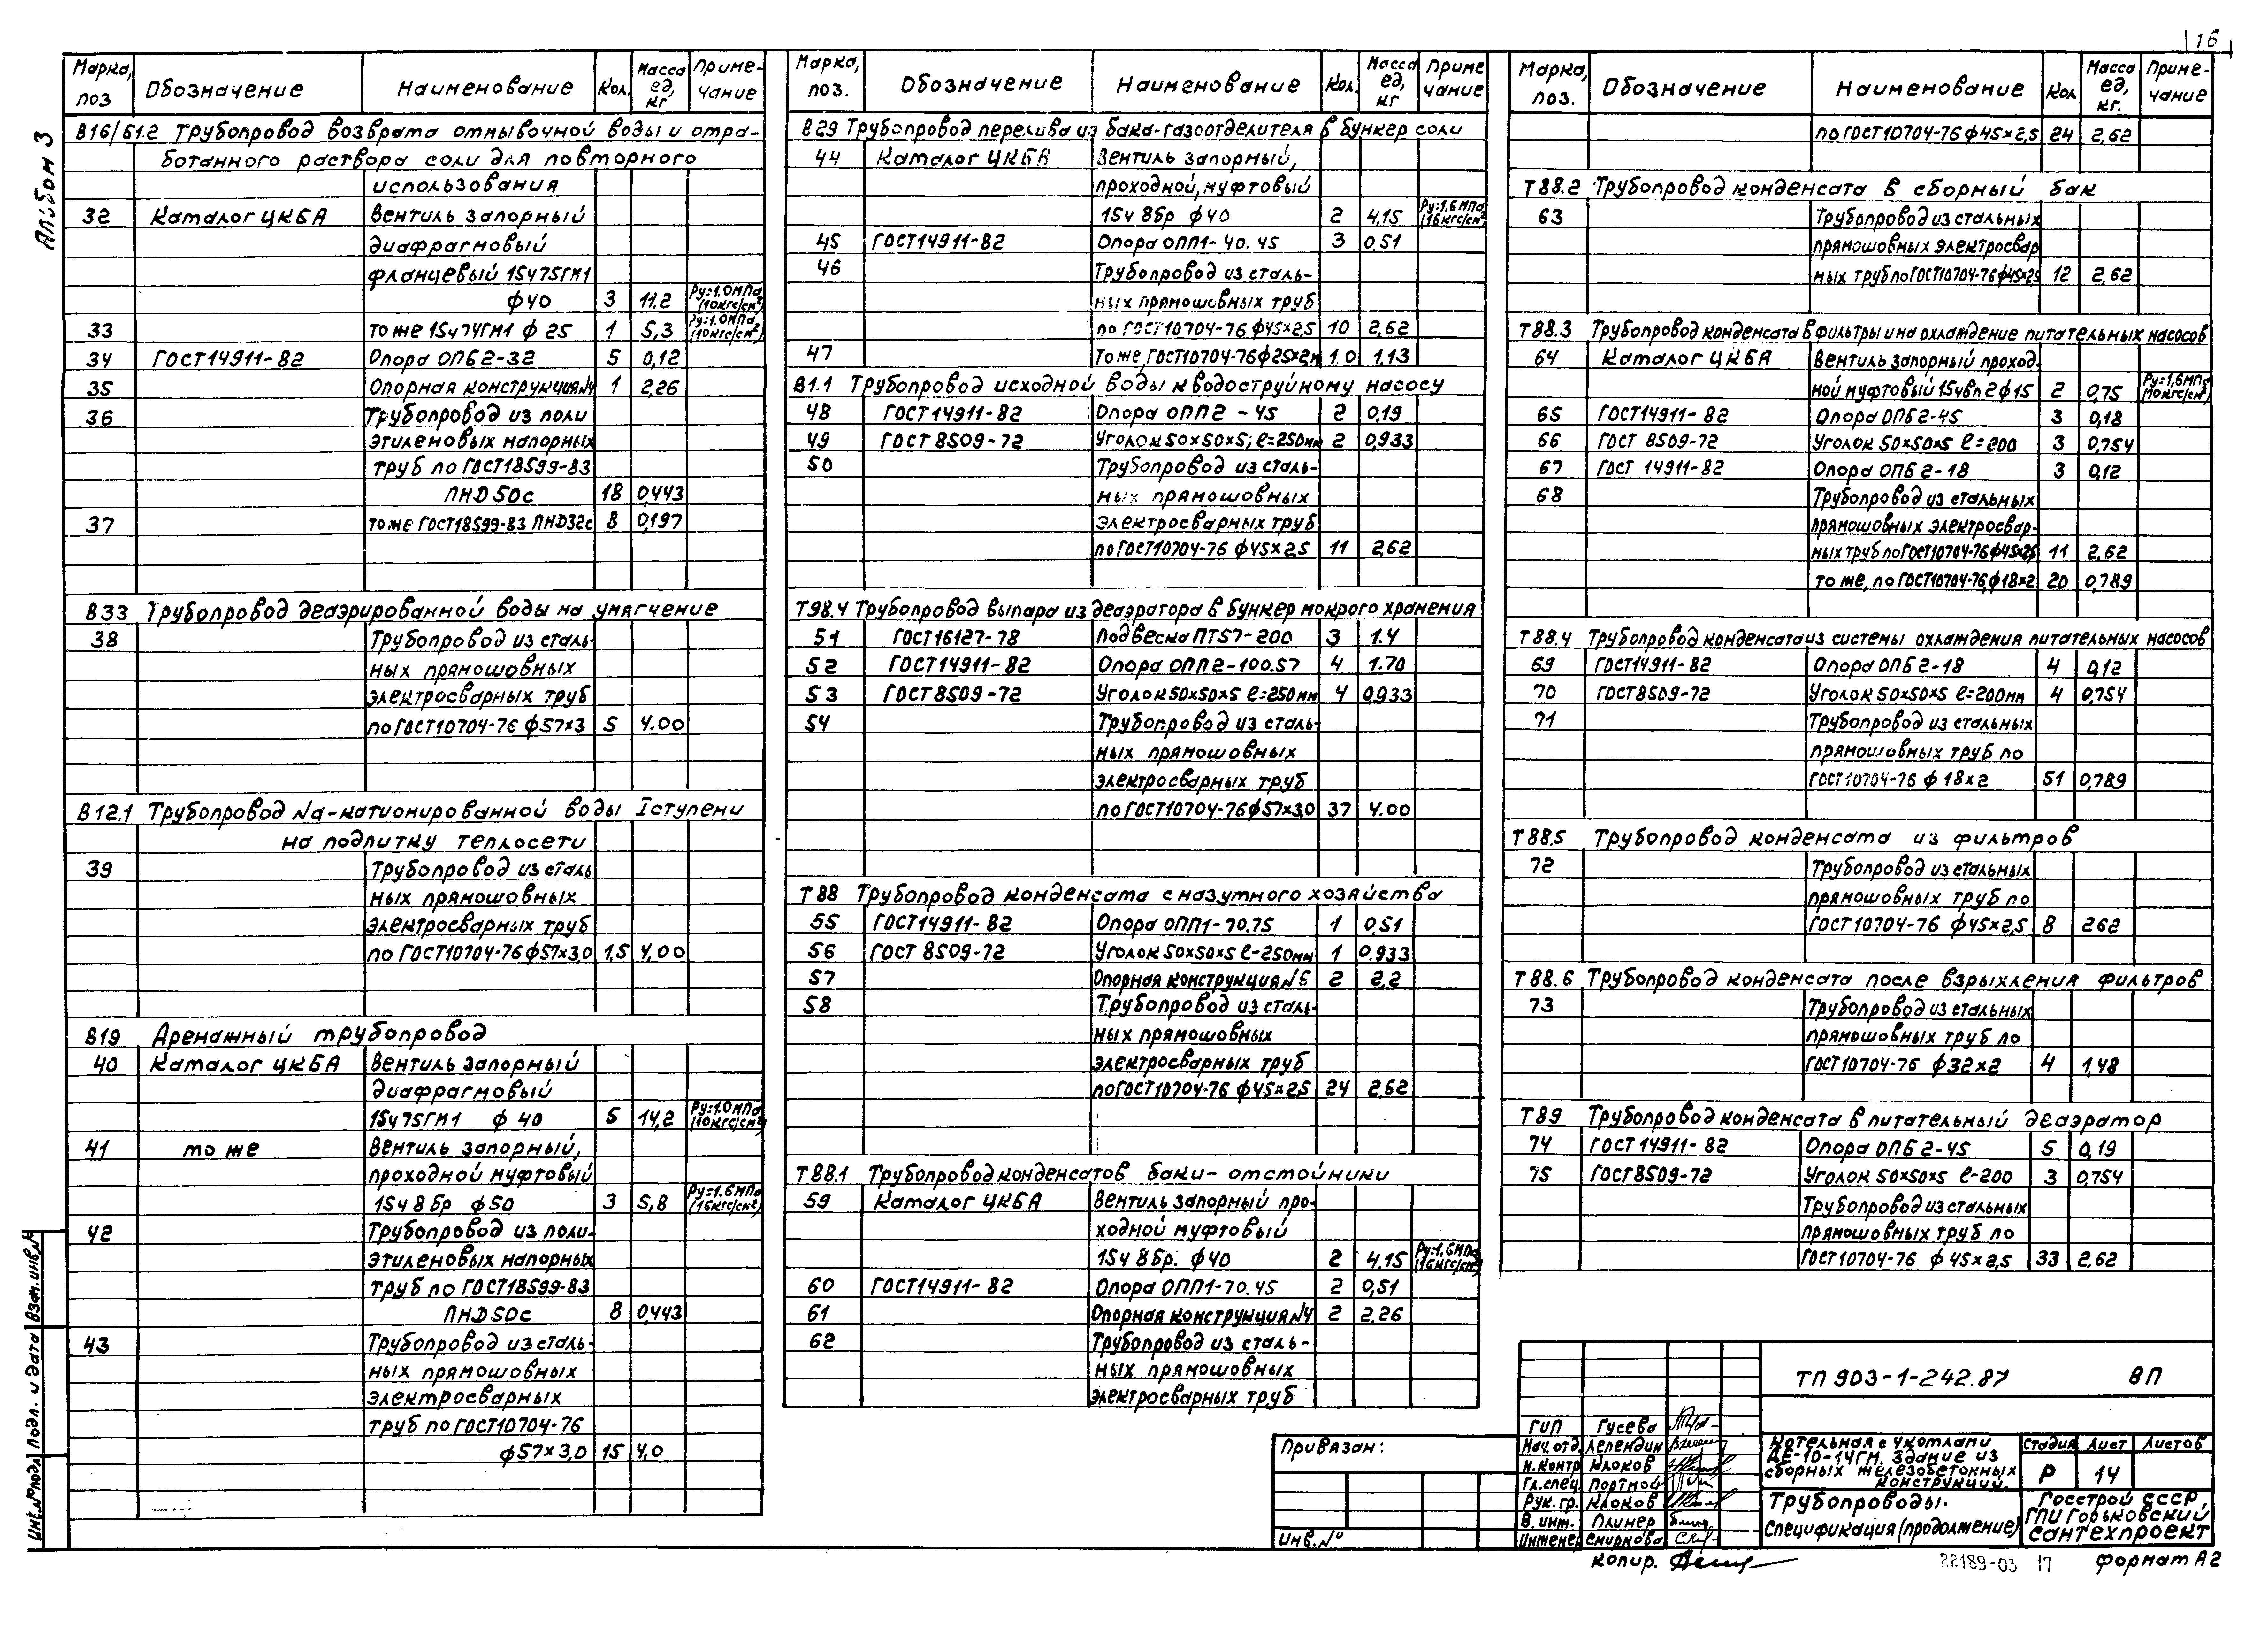 16
Альбом 3
Марка, поз Обозначение Наименование Кол. Масса ед, кг Приме-чание
В16/Б1.2 Трубопровод возврата отмывочной воды и отра-
ботанного раствора соли для повторного
использования
32 Каталог ЦКБА Вентиль запорный
диафрагмовый
фланцевый 15ч75ГМ1
ф40 3 11.2 Ру=1.0МПа (10кгс/см²)
33 то же 15ч74ГМ1 ф 25 1 5,3 Ру=1.0МПа (10кгс/см²)
34 ГОСТ14911-82 Опора ОПБ2-32 5 0,12
35 Опорная конструкция№4 1 2.26
36 Трубопровод из поли
этиленовых напорных
труб по ГОСТ18599-83
ПНД50с 18 0,443
37 то же ГОСТ18599-83 ПНД32с 8 0,197
В33 Трубопровод деаэрированной воды на умягчение
38 Трубопровод из сталь-
ных прямошовных
электросварных труб
по ГОСТ10704-76 ф57×3 5 4.00
В12.1 Трубопровод Na-катионированной воды I ступени
на подпитку теплосети
39 Трубопровод из сталь
ных прямошовных
электросварных труб
по ГОСТ10704-76 ф57×3,0 1,5 4,00
В19 Дренажный трубопровод
40 Каталог ЦКБА Вентиль запорный
диафрагмовый
15ч75ГМ1 ф 40 5 14,2 Ру=1.0МПа (10кгс/см²)
41 то же Вентиль запорный,
проходной муфтовый
15ч 8бр ф50 3 5,8 Ру=1.6МПа (16кгс/см²)
42 Трубопровод из поли-
этиленовых напорных
труб по ГОСТ18599-83
ПНД50с 8 0,443
43 Трубопровод из сталь-
ных прямошовных
электросварных
труб по ГОСТ10704-76
ф57×3,0 15 4,0
Марка, поз. Обозначение Наименование Кол. Масса ед, кг Приме чание
В29 Трубопровод перелива из бака-газоотделителя в бункер соли
44 Каталог ЦКБА Вентиль запорный,
проходной, муфтовый
15ч 8бр ф40 2 4,15 Ру=1,6МПа (16кгс/см²)
45 ГОСТ14911-82 Опора ОПП1-40.45 3 0,51
46 Трубопровод из сталь-
ных прямошовных труб
по ГОСТ10704-76 ф45×2,5 10 2,62
47 То же, ГОСТ10704-76ф25×2м 1.0 1,13
В1.1 Трубопровод исходной воды к водоструйному насосу
48 ГОСТ14911-82 Опора ОПП2-45 2 0,19
49 ГОСТ 8509-72 Уголок 50×50×5; ℓ=250мм 2 0,933
50 Трубопровод из сталь-
ных прямошовных
электросварных труб
по ГОСТ10704-76 ф45×2,5 11 2,62
Т98.4 Трубопровод выпара из деаэратора в бункер мокрого хранения
51 ГОСТ16127-78 Подвеска ПТ57-200 3 1.4
52 ГОСТ14911-82 Опора ОПП2-100.57 4 1.70
53 ГОСТ8509-72 Уголок 50×50×5 ℓ=250мм 4 0,933
54 Трубопровод из сталь-
ных прямошовных
электросварных труб
по ГОСТ10704-76ф57×3,0 37 4.00
Т88 Трубопровод конденсата с мазутного хозяйства
55 ГОСТ14911-82 Опора ОПП1-70.75 1 0,51
56 ГОСТ 8509-72 Уголок 50×50×5 ℓ-250мм 1 0.933
57 Опорная конструкция№5 2 2,2
58 Трубопровод из сталь-
ных прямошовных
электросварных труб
по ГОСТ10704-76 ф45×2,5 24 2,62
Т88.1 Трубопровод конденсатов баки-отстойники
59 Каталог ЦКБА Вентиль запорный про-
ходной муфтовый
15ч 8бр. ф40 2 4,15 Ру=1,6МПа (16кгс/см²)
60 ГОСТ14911-82 Опора ОПП1-70.45 2 0,51
61 Опорная конструкция№4 2 2.26
62 Трубопровод из сталь-
ных прямошовных
электросварных труб
Марка, поз. Обозначение Наименование Кол Масса ед, кг. Приме-чание
по ГОСТ10704-76 ф45×2,5 24 2,62
Т88.2 Трубопровод конденсата в сборный бак
63 Трубопровод из стальных
прямошовных электросвар
ных труб по ГОСТ10704-76 ф45×2,5 12 2,62
Т88.3 Трубопровод конденсата в фильтры и на охлаждение питательных насосов
64 Каталог ЦКБА Вентиль запорный проход
ной муфтовый 15ч8п2 ф15 2 0,75 Ру=1,6МПа
65 ГОСТ14911-82 Опора ОПБ2-45 3 0,18
66 ГОСТ 8509-72 Уголок 50×50×5 ℓ=200 3 0,754
67 ГОСТ 14911-82 Опора ОПБ 2-18 3 0,12
68 Трубопровод из стальных
прямошовных электросвар-
ных труб по ГОСТ10704-76 ф45×2,5 11 2,62
то же, по ГОСТ10704-76, ф18×2 20 0,789
Т88.4 Трубопровод конденсата из системы охлаждения питательных насосов
69 ГОСТ14911-82 Опора ОПБ 2-18 4 0,12
70 ГОСТ8509-72 Уголок 50×50×5 ℓ=200мм 4 0,754
71 Трубопровод из стальных
прямошовных труб по
ГОСТ10704-76 ф 18×2 51 0,789
Т88.5 Трубопровод конденсата из фильтров
72 Трубопровод из стальных
прямошовных труб по
ГОСТ10704-76 ф45×2,5 8 2.62
Т88.6 Трубопровод конденсата после взрыхления фильтров
73 Трубопровод из стальных
прямошовных труб по
ГОСТ10704-76 ф32×2 4 1,48
Т89 Трубопровод конденсата в питательный деаэратор
74 ГОСТ 14911-82 Опора ОПБ 2-45 5 0,19
75 ГОСТ8509-72 Уголок 50×50×5 ℓ-200 3 0,754
Трубопровод из стальных
прямошовных труб по
ГОСТ10704-76 ф 45×2,5 33 2.62
Привязан:
Инв.№
ТП 903-1-242.87 ВП
ГИП Гусева
Нач.отд Лепендин
Н.контр Клоков
Гл.спец. Портной
Рук.гр. Клоков
В. инж. Плинер
Инженер Смирнова
Котельная с 4 котлами
ДЕ-10-14ГМ. Здание из
сборных железобетонных
конструкций.
Стадия Лист Листов
Р 14
Трубопроводы.
Спецификация (продолжение)
Госстрой СССР,
ГПИ Горьковский
Сантехпроект
Копир.
22189-03 17
Формат А2
Инв.№подл. Подл. и дата Взам.инв.№